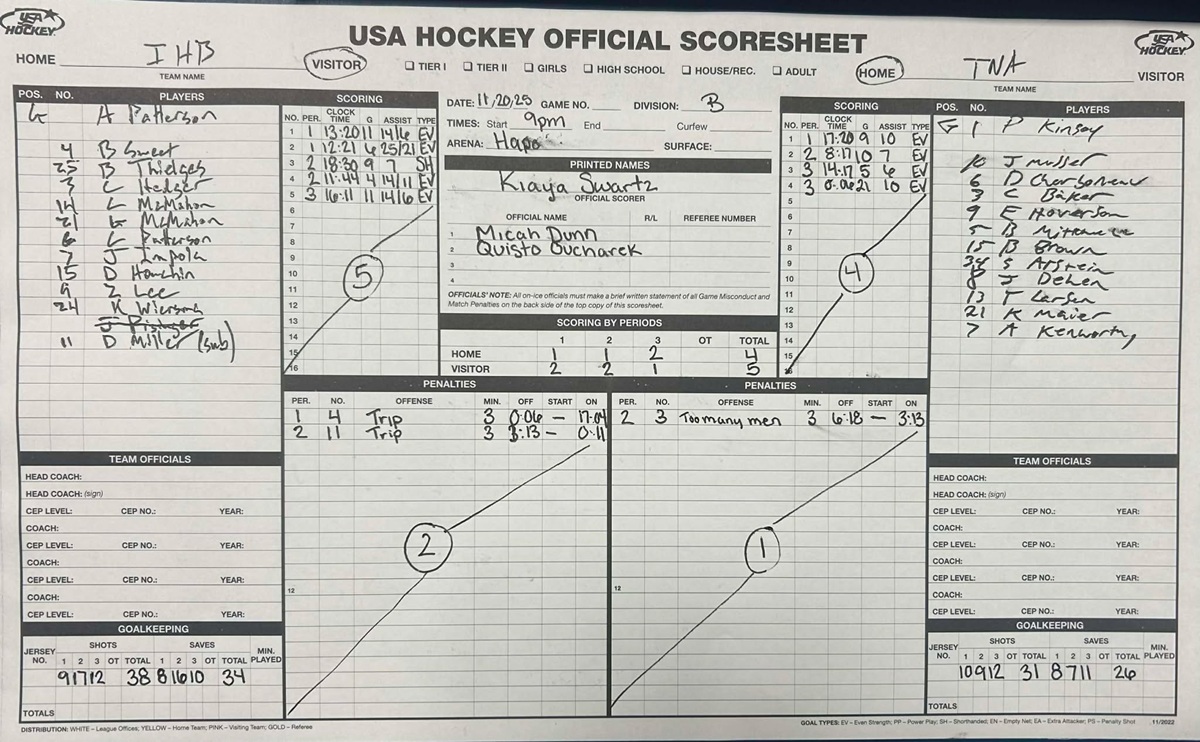 USA HOCKEY
USA HOCKEY OFFICIAL SCORESHEET
USA HOCKEY
HOME IHB VISITOR
TEAM NAME
☐ TIER I ☐ TIER II ☐ GIRLS ☐ HIGH SCHOOL ☐ HOUSE/REC. ☐ ADULT
HOME TNA VISITOR
TEAM NAME
POS. NO. PLAYERS
G A Patterson
4 B Sweet
25 B Thidges
3 C Hedger
14 C McMahon
21 G McMahon
6 C Patterson
7 J Impola
15 D Houchin
9 Z Lee
24 K Wierson
11 D Miller (sub)
SCORING
NO. PER. CLOCK TIME G ASSIST TYPE
1 1 13:20 11 14/6 EV
2 1 12:21 6 25/21 EV
3 2 18:30 9 7 SH
4 2 11:44 4 14/11 EV
5 3 16:11 11 14/6 EV
6
7
8
9
10
11
12
13
14
15
16
5
DATE: 11/20/25 GAME NO. DIVISION: B
TIMES: Start 9pm End Curfew
ARENA: Hapo SURFACE:
PRINTED NAMES
Kiaya Swartz
OFFICIAL SCORER
OFFICIAL NAME R/L REFEREE NUMBER
1 Micah Dunn
2 Quisto Bucharek
3
4
OFFICIALS' NOTE: All on-ice officials must make a brief written statement of all Game Misconduct and
Match Penalties on the back side of the top copy of this scoresheet.
SCORING BY PERIODS
1 2 3 OT TOTAL
HOME 1 1 2 4
VISITOR 2 2 1 5
SCORING
NO. PER. CLOCK TIME G ASSIST TYPE
1 1 17:20 9 10 EV
2 2 8:17 10 7 EV
3 3 14:17 5 6 EV
4 3 0:06 21 10 EV
5
6
7
8
9
10
11
12
13
14
15
16
4
POS. NO. PLAYERS
G 1 P Kinsey
10 J Musser
6 D Charboneau
3 C Baker
9 E Hoverson
5 B
15 B Brown
34 S Arstein
8 J Dehen
13 T Larsen
21 K Maier
7 A Kenworthy
PENALTIES
PER. NO. OFFENSE MIN. OFF START ON
1 4 Trip 3 0:06 – 17:04
2 11 Trip 3 3:13 – 0:11
12
2
PENALTIES
PER. NO. OFFENSE MIN. OFF START ON
2 3 Too many men 3 6:18 – 3:13
12
1
TEAM OFFICIALS
HEAD COACH:
HEAD COACH: (sign)
CEP LEVEL: CEP NO.: YEAR:
COACH:
CEP LEVEL: CEP NO.: YEAR:
COACH:
CEP LEVEL: CEP NO.: YEAR:
COACH:
CEP LEVEL: CEP NO.: YEAR:
GOALKEEPING
JERSEY NO. SHOTS SAVES MIN. PLAYED
1 2 3 OT TOTAL 1 2 3 OT TOTAL
9 17 12 38 8 16 10 34
TOTALS
TEAM OFFICIALS
HEAD COACH:
HEAD COACH: (sign)
CEP LEVEL: CEP NO.: YEAR:
COACH:
CEP LEVEL: CEP NO.: YEAR:
COACH:
CEP LEVEL: CEP NO.: YEAR:
COACH:
CEP LEVEL: CEP NO.: YEAR:
GOALKEEPING
JERSEY NO. SHOTS SAVES MIN. PLAYED
1 2 3 OT TOTAL 1 2 3 OT TOTAL
10 9 12 31 8 7 11 26
TOTALS
DISTRIBUTION: WHITE – League Offices; YELLOW – Home Team; PINK – Visiting Team; GOLD – Referee
GOAL TYPES: EV – Even Strength; PP – Power Play; SH – Shorthanded; EN – Empty Net; EA – Extra Attacker; PS – Penalty Shot 11/2022